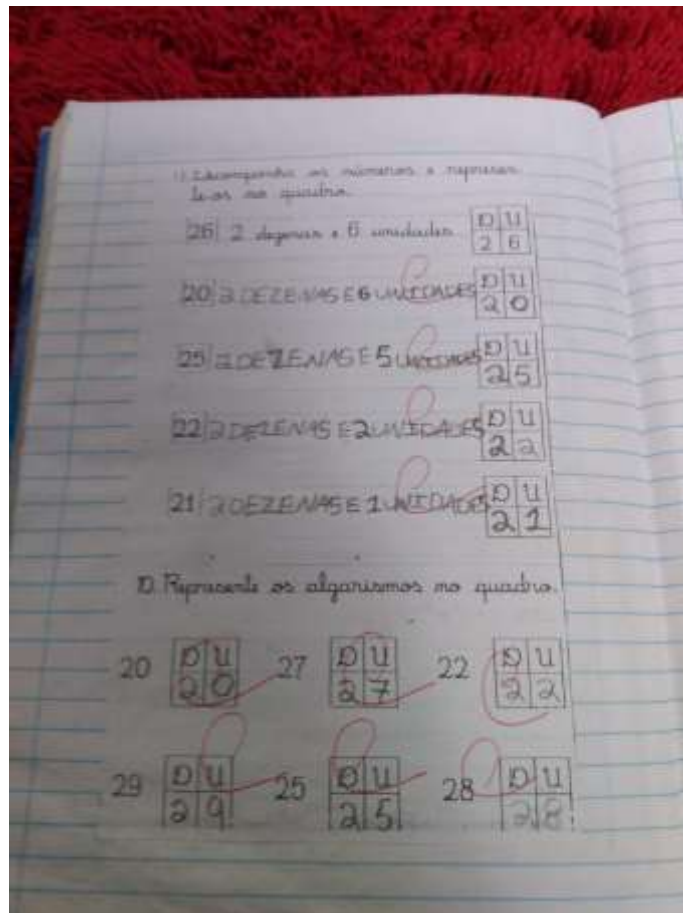 1) Decomponha os números e represen-
te-os no quadro.
26 2 dezenas e 6 unidades D U
2 6
20 2 DEZENAS E 6 UNIDADES D U
2 0
25 2 DEZENAS E 5 UNIDADES D U
2 5
22 2 DEZENAS E 2 UNIDADES D U
2 2
21 2 DEZENAS E 1 UNIDADES D U
2 1
D. Represente os algarismos no quadro.
20 D U 27 D U 22 D U
2 0 2 7 2 2
29 D U 25 D U 28 D U
2 9 2 5 2 8